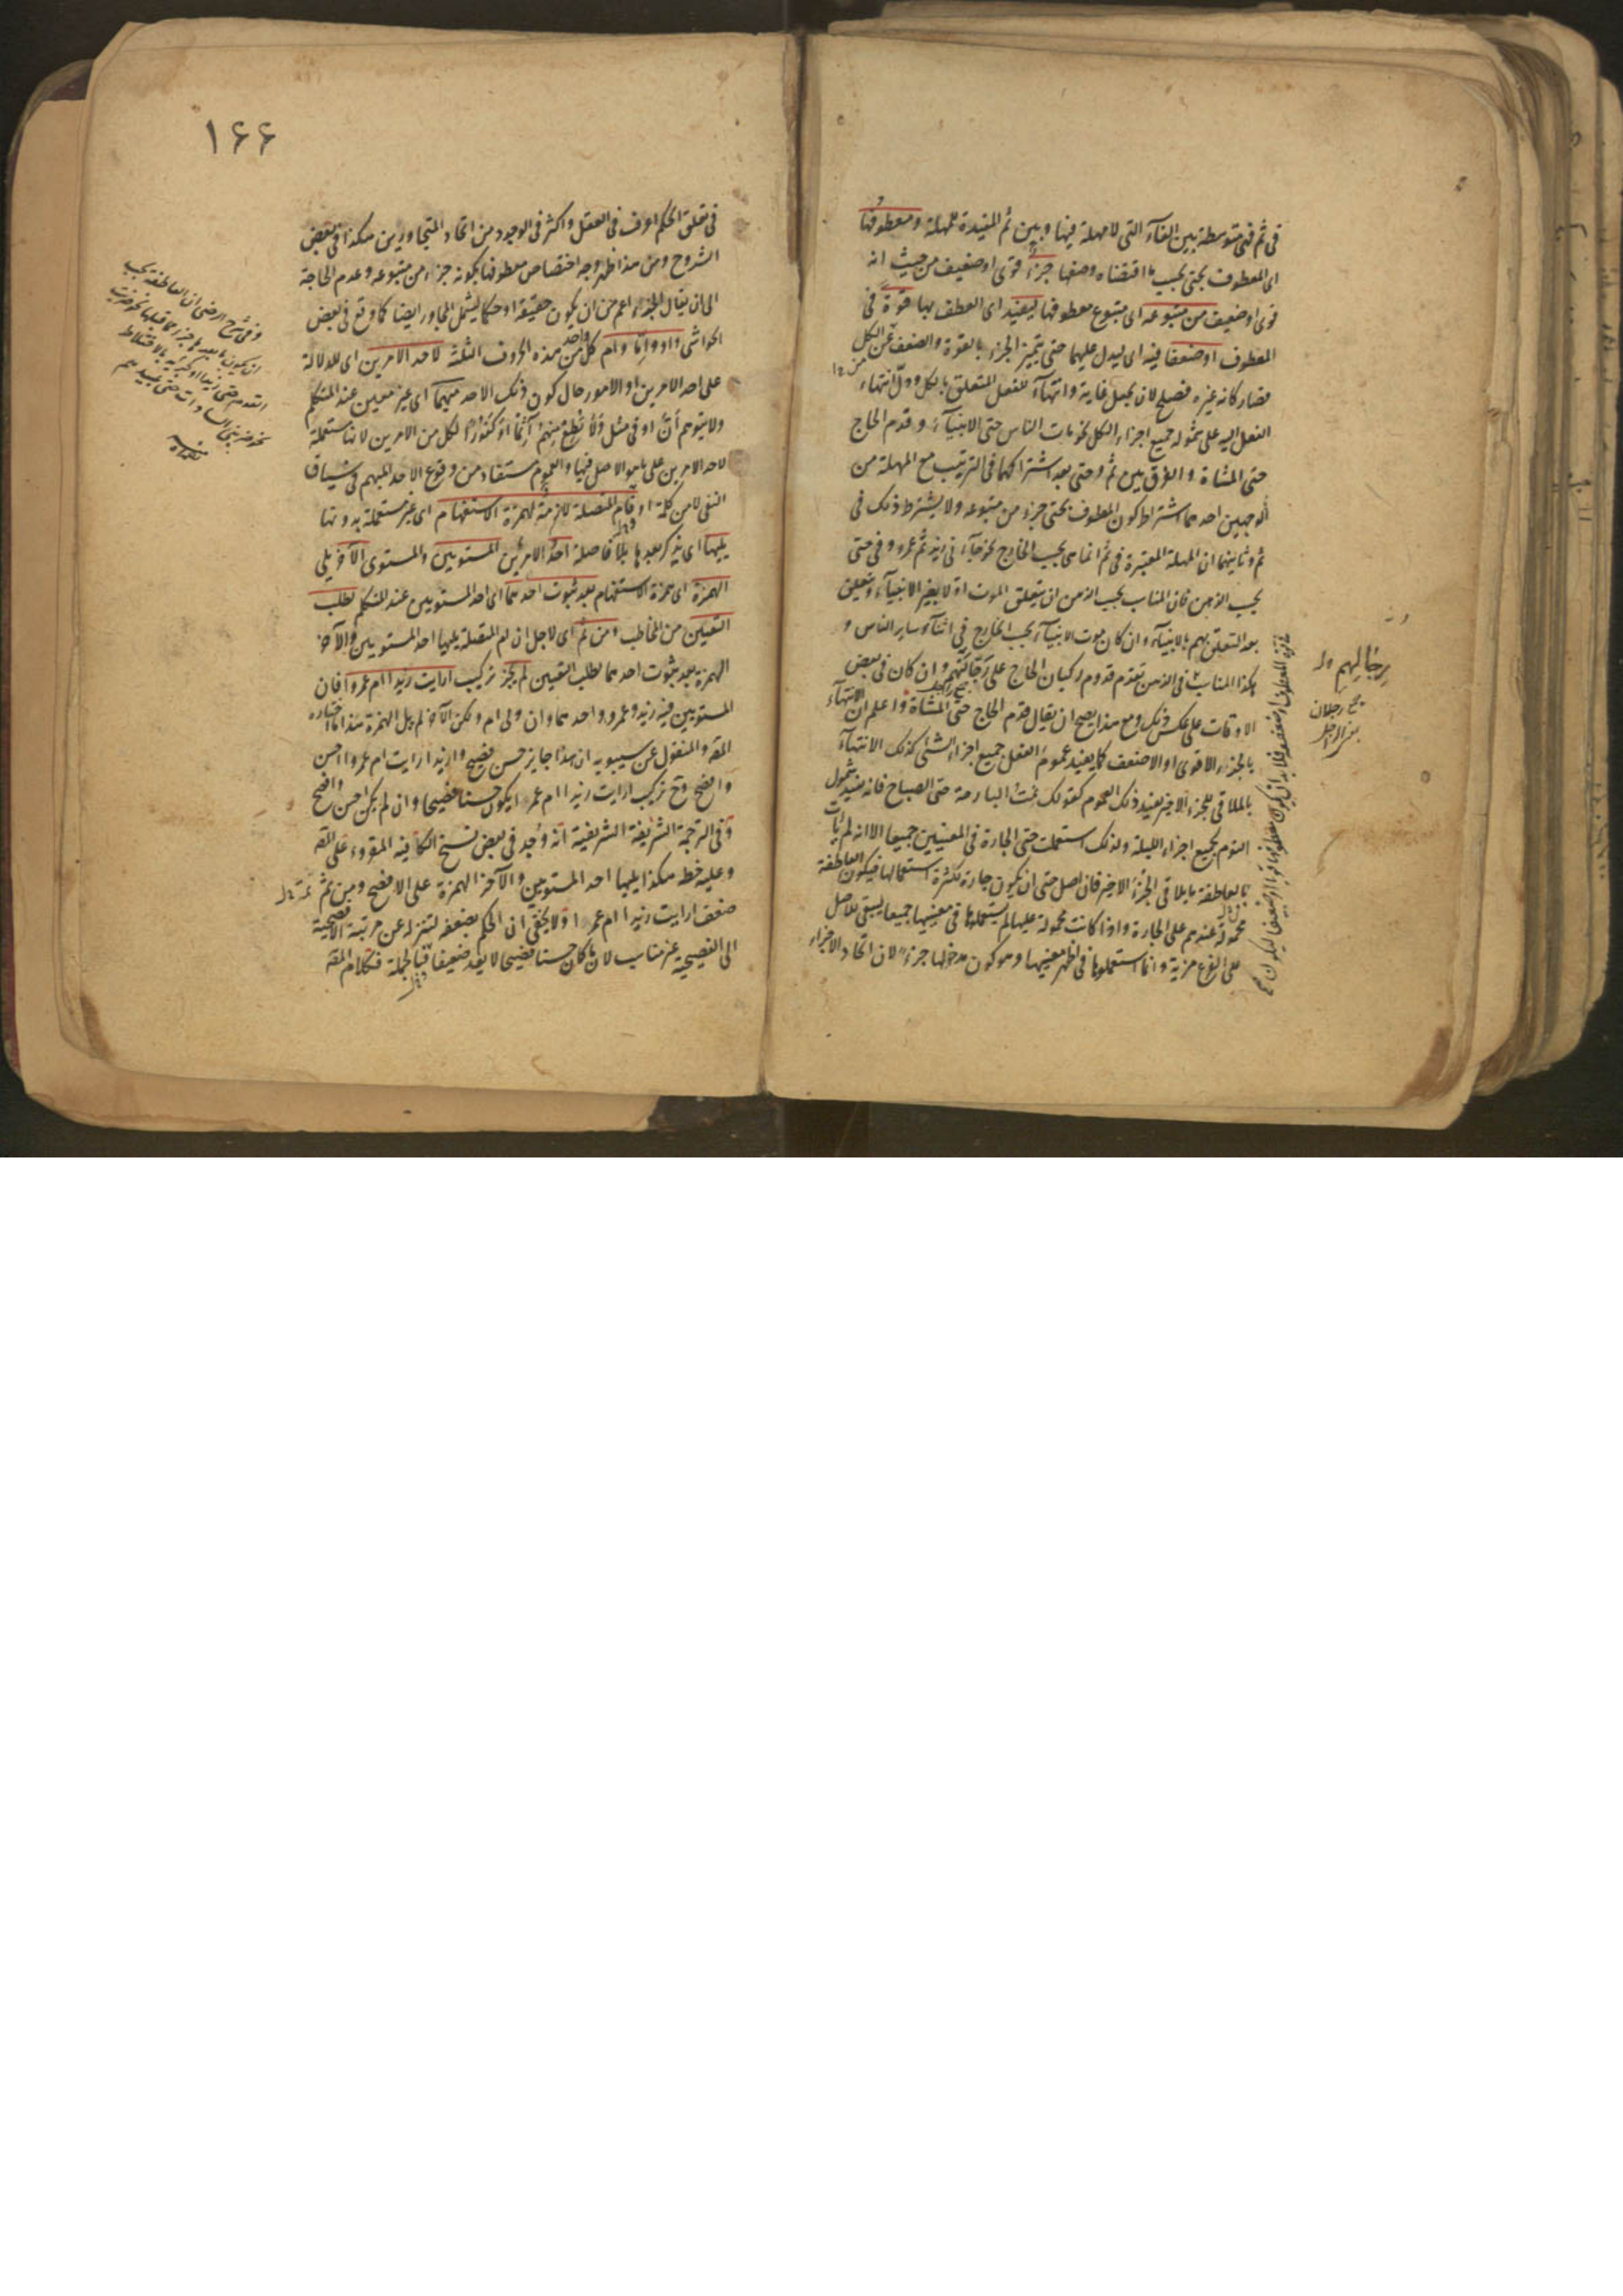 فى ثم فهى متوسطة بين الفآء التى لا مهلة فيها وبين ثم المفيدة للمهلة ومعطوفها
اى المعطوف بحتى بحسب ما اقتضاه وضعها جزء قوى او ضعيف من حيث انه
قوى او ضعيف من متبوعه اى متبوع معطوفها ليفيد اى العطف بها قوة فى
المعطوف او ضعفا فيه اى ليدل عليهما حتى يتميز الجزء بالقوة والضعف عن الكل
فصار كانه غيره فصلح لان يجعل غاية وانتهآء للفعل المتعلق بالكل ودل انتهاء
الفعل اليه على شموله جميع اجزاء الكل نحو مات الناس حتى الانبيآء وقدم الحاج
حتى المشاة والفرق بين ثم وحتى بعد اشتراكهما فى الترتيب مع المهلة من
الوجهين احدهما اشتراط كون المعطوف بحتى جزء من متبوعه ولا يشترط ذلك فى
ثم وثانيهما ان المهلة المعتبرة فى ثم انما هى بحسب الخارج نحو جآءنى زيد ثم عمرو وفى حتى
بحسب الذهن فان المناسب بحسب الذهن ان يتعلق الموت اولا بغير الانبيآء ويتعلق
بعد التعلق بهم بالانبيآء وان كان موت الانبيآء بحسب الخارج فى اثنآء سائر الناس و
هكذا المناسب فى الذهن تقدم قدوم ركبان الحاج على رجالتهم وان كان فى بعض
الاوقات على عكس ذلك ومع هذا يصح ان يقال قدم الحاج حتى المشاة واعلم ان الانتهآء
بالجزء الاقوى او الاضعف كما يفيد عموم الفعل جميع اجزاء الشئ كذلك الانتهآء
بالملاقى للجزء الاخير يفيد ذلك العموم كقولك نمت البارحة حتى الصباح فانه يفيد شمول
النوم بجميع اجزاء الليلة ولذلك استعملت حتى الجارة فى المعنيين جميعا الا انه لم يأت
بالعاطفة ما يلاقى الجزء الاخير فان اصل حتى ان يكون جارة لكثرة استعمالها فيكون العاطفة
محمولة عندهم على الجارة واذا كانت محمولة عليها لم يستعملوها فى معنييها جميعا ليبقى للاصل
على الفرع مزية وانما استعملوها فى اظهر معنييها وهو كون مدخولها جزءا لان اتحاد الاجزاء
برجالهم
جمع رجلان
١۶۶
فى تعلق الحكم اعرف فى العقل واكثر فى الوجود من اتحاد المتجاورين هكذا فى بعض
الشروح ومن هذا ظهر وجه اختصاص معطوفها بكونه جزءا من متبوعه وعدم الحاجة
الى ان يقال الجزء اعم من ان يكون حقيقة او حكما ليشمل المجاور ايضا كما وقع فى بعض
الحواشى واو واما وام كل واحد من هذه الحروف الثلثة لاحد الامرين اى للدلالة
على احد الامرين او الامور حال كون ذلك الاحد مبهما اى غير معين عند المتكلم
ولا يتوهم ان او فى مثل ولا تطع منهم آثما او كفورا لكل من الامرين لانها مستعملة
لاحد الامرين على ما هو الاصل فيها والعموم مستفاد من وقوع الاحد المبهم فى سياق
النفى لا من كلمة او وام المتصلة لازمة لهمزة الاستفهام اى غير مستعملة بدونها
يليها اى يذكر بعدها بلا فاصلة احد الامرين المستويين والمستوى الآخر يلى
الهمزة اى همزة الاستفهام بعد ثبوت احدهما اى احد المستويين عند المتكلم لطلب
التعيين من المخاطب ومن ثم اى لاجل ان ام المتصلة يليها احد المستويين والآخر
الهمزة بعد ثبوت احدهما لطلب التعيين لم يجز تركيب ارايت زيدا ام عمروا فان
المستويين فيه زيد وعمرو واحدهما وان ولى ام ولكن الآخر لم يل الهمزة هذا ما اختاره
المص والمنقول عن سيبويه ان هذا جايز حسن فصيح وازيدا رايت ام عمروا احسن
وافصح وح تركيب ارايت زيدا ام عمروا يكون حسنا فصيحا وان لم يكن احسن وافصح
وفى الترجمة الشريفة الشريفية انه وجد فى بعض نسخ الكافية المقروءة على المص
وعليه خطه هكذا يليها احد المستويين والآخر الهمزة على الافصح ومن ثم
ضعف ارايت زيدا ام عمروا ولا يخفى ان الحكم بضعفه لتنزله عن مرتبة الافصحية
الى الفصيحية غير مناسب لان ما كان حسنا فصيحا لا يعد ضعيفا فبالجملة فكلام المص
وفى شرح الرضى ان العاطفة يجب
ان يكون ما بعدها جزءا مما قبلها نحو ضربت